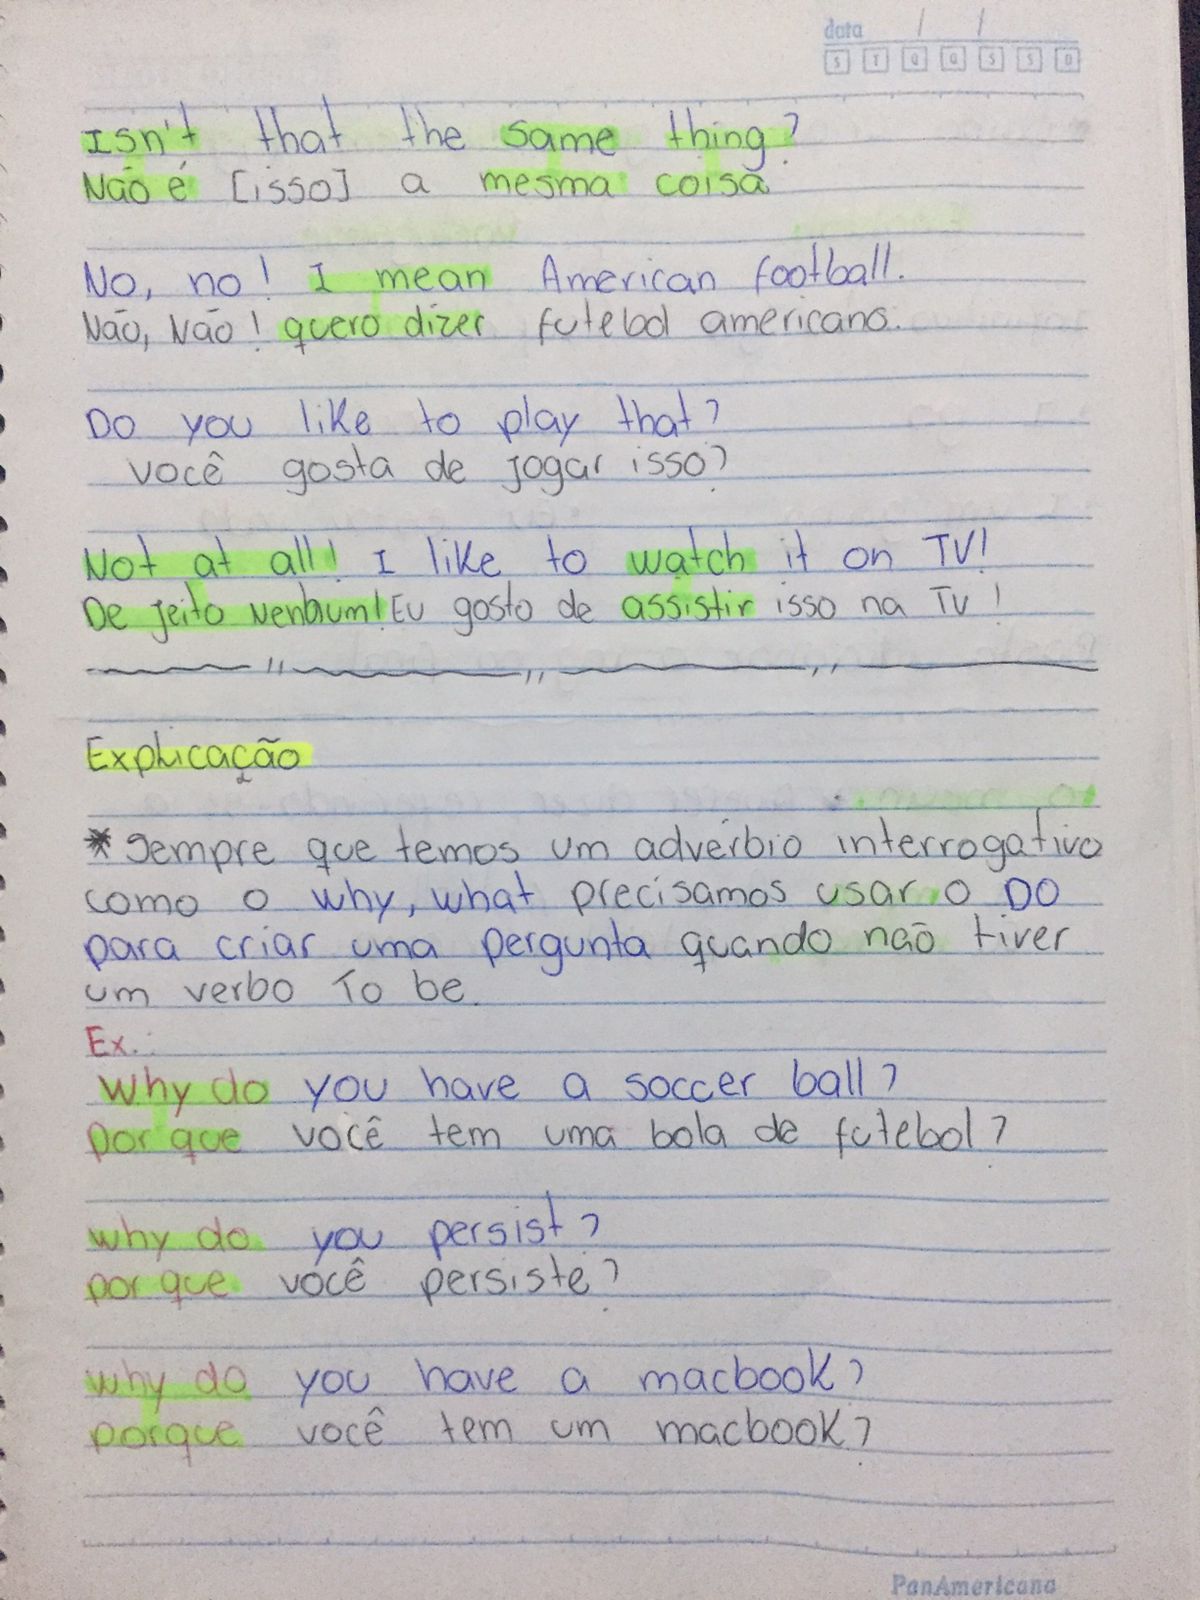 data / /
S T Q Q S S D
Isn't that the same thing?
Não é [isso] a mesma coisa
No, no! I mean American football.
Não, Não! quero dizer futebol americano.
Do you like to play that?
você gosta de jogar isso?
Not at all! I like to watch it on TV!
De jeito nenhum! Eu gosto de assistir isso na TV!
Explicação
* Sempre que temos um advérbio interrogativo
como o why, what precisamos usar o DO
para criar uma pergunta quando não tiver
um verbo To be.
Ex.:
Why do you have a soccer ball?
por que você tem uma bola de futebol?
why do you persist?
por que você persiste?
why do you have a macbook?
porque você tem um macbook?
PanAmericana